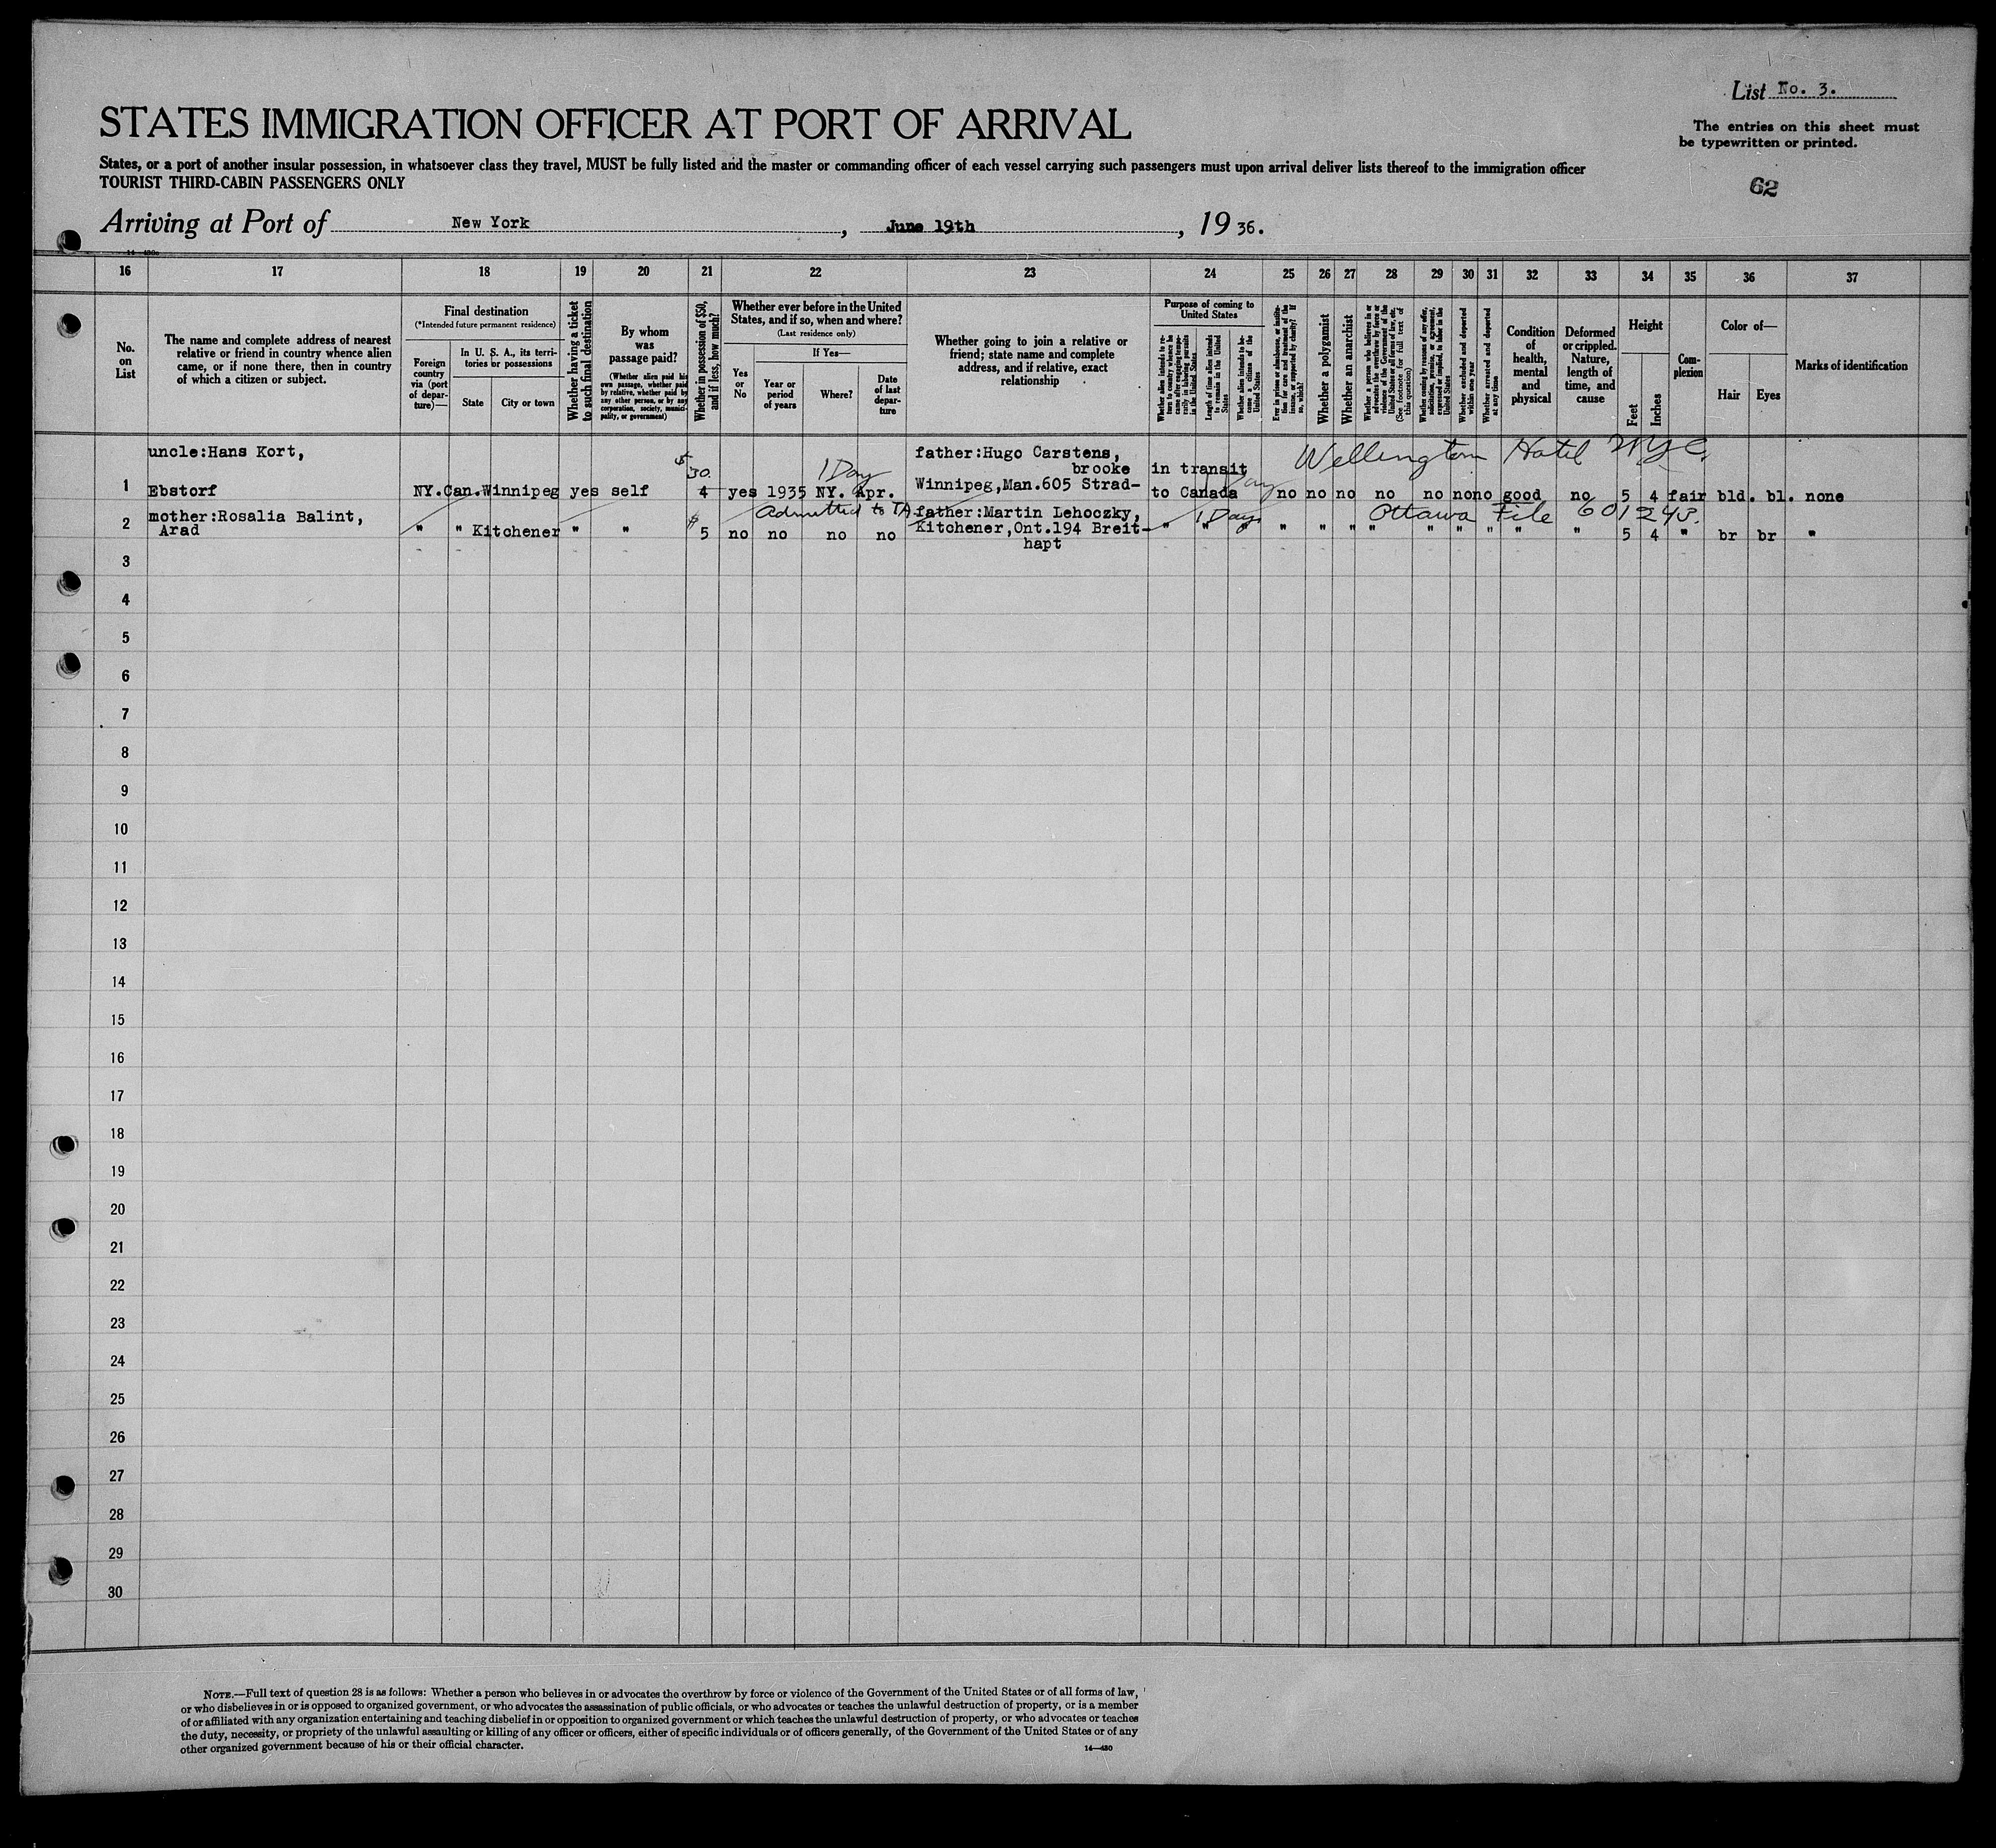 List No. 3.
STATES IMMIGRATION OFFICER AT PORT OF ARRIVAL
The entries on this sheet must
be typewritten or printed.
States, or a port of another insular possession, in whatsoever class they travel, MUST be fully listed and the master or commanding officer of each vessel carrying such passengers must upon arrival deliver lists thereof to the immigration officer
TOURIST THIRD-CABIN PASSENGERS ONLY
62
Arriving at Port of New York, June 19th, 1936.
14—430c
16 17 18 19 20 21 22 23 24 25 26 27 28 29 30 31 32 33 34 35 36 37
No.
on
List
The name and complete address of nearest
relative or friend in country whence alien
came, or if none there, then in country
of which a citizen or subject.
Final destination
(*Intended future permanent residence)
Foreign
country
via (port
of depar-
ture)—
In U. S. A., its terri-
tories or possessions
State
City or town
Whether having a ticket
to such final destination
By whom
was
passage paid?
(Whether alien paid his
own passage, whether paid
by relative, whether paid by
any other person, or by any
corporation, society, munici-
pality, or government)
Whether in possession of $50,
and if less, how much?
Whether ever before in the United
States, and if so, when and where?
(Last residence only)
Yes
or
No
If Yes—
Year or
period
of years
Where?
Date
of last
depar-
ture
Whether going to join a relative or
friend; state name and complete
address, and if relative, exact
relationship
Purpose of coming to
United States
Whether alien intends to re-
turn to country whence he
came after engaging tempo-
rarily in laboring pursuits
in the United States
Length of time alien intends
to remain in the United
States
Whether alien intends to be-
come a citizen of the
United States
Ever in prison or almshouse, or institu-
tion for care and treatment of the
insane, or supported by charity? If
so, which?
Whether a polygamist
Whether an anarchist
Whether a person who believes in or
advocates the overthrow by force or
violence of the Government of the
United States or all forms of law, etc.
(See footnote for full text of
this question)
Whether coming by reasons of any offer,
solicitation, promise, or agreement,
expressed or implied, to labor in the
United States
Whether excluded and deported
within one year
Whether arrested and deported
at any time
Condition
of
health,
mental
and
physical
Deformed
or crippled.
Nature,
length of
time, and
cause
Height
Feet
Inches
Com-
plexion
Color of—
Hair
Eyes
Marks of identification
uncle:Hans Kort, $ 30. 1 Day father:Hugo Carstens, Wellington Hotel NYC.
brooke in transit
1 Ebstorf NY.Can.Winnipeg yes self 4 yes 1935 NY. Apr. Winnipeg,Man.605 Strad- to Canada 1 Day no no no no no no no good no 5 4 fair bld. bl. none
mother:Rosalia Balint, admitted to father:Martin Lehoczky, 1 Day Ottawa File 601248.
2 Arad " " Kitchener " " $ 5 no no no no Kitchener,Ont.194 Breit- " " " " " " " " " " " " 5 4 " br br "
hapt
3
4
5
6
7
8
9
10
11
12
13
14
15
16
17
18
19
20
21
22
23
24
25
26
27
28
29
30
NOTE.—Full text of question 28 is as follows: Whether a person who believes in or advocates the overthrow by force or violence of the Government of the United States or of all forms of law,
or who disbelieves in or is opposed to organized government, or who advocates the assassination of public officials, or who advocates or teaches the unlawful destruction of property, or is a member
of or affiliated with any organization entertaining and teaching disbelief in or opposition to organized government or which teaches the unlawful destruction of property, or who advocates or teaches
the duty, necessity, or propriety of the unlawful assaulting or killing of any officer or officers, either of specific individuals or of officers generally, of the Government of the United States or of any
other organized government because of his or their official character.
14—430